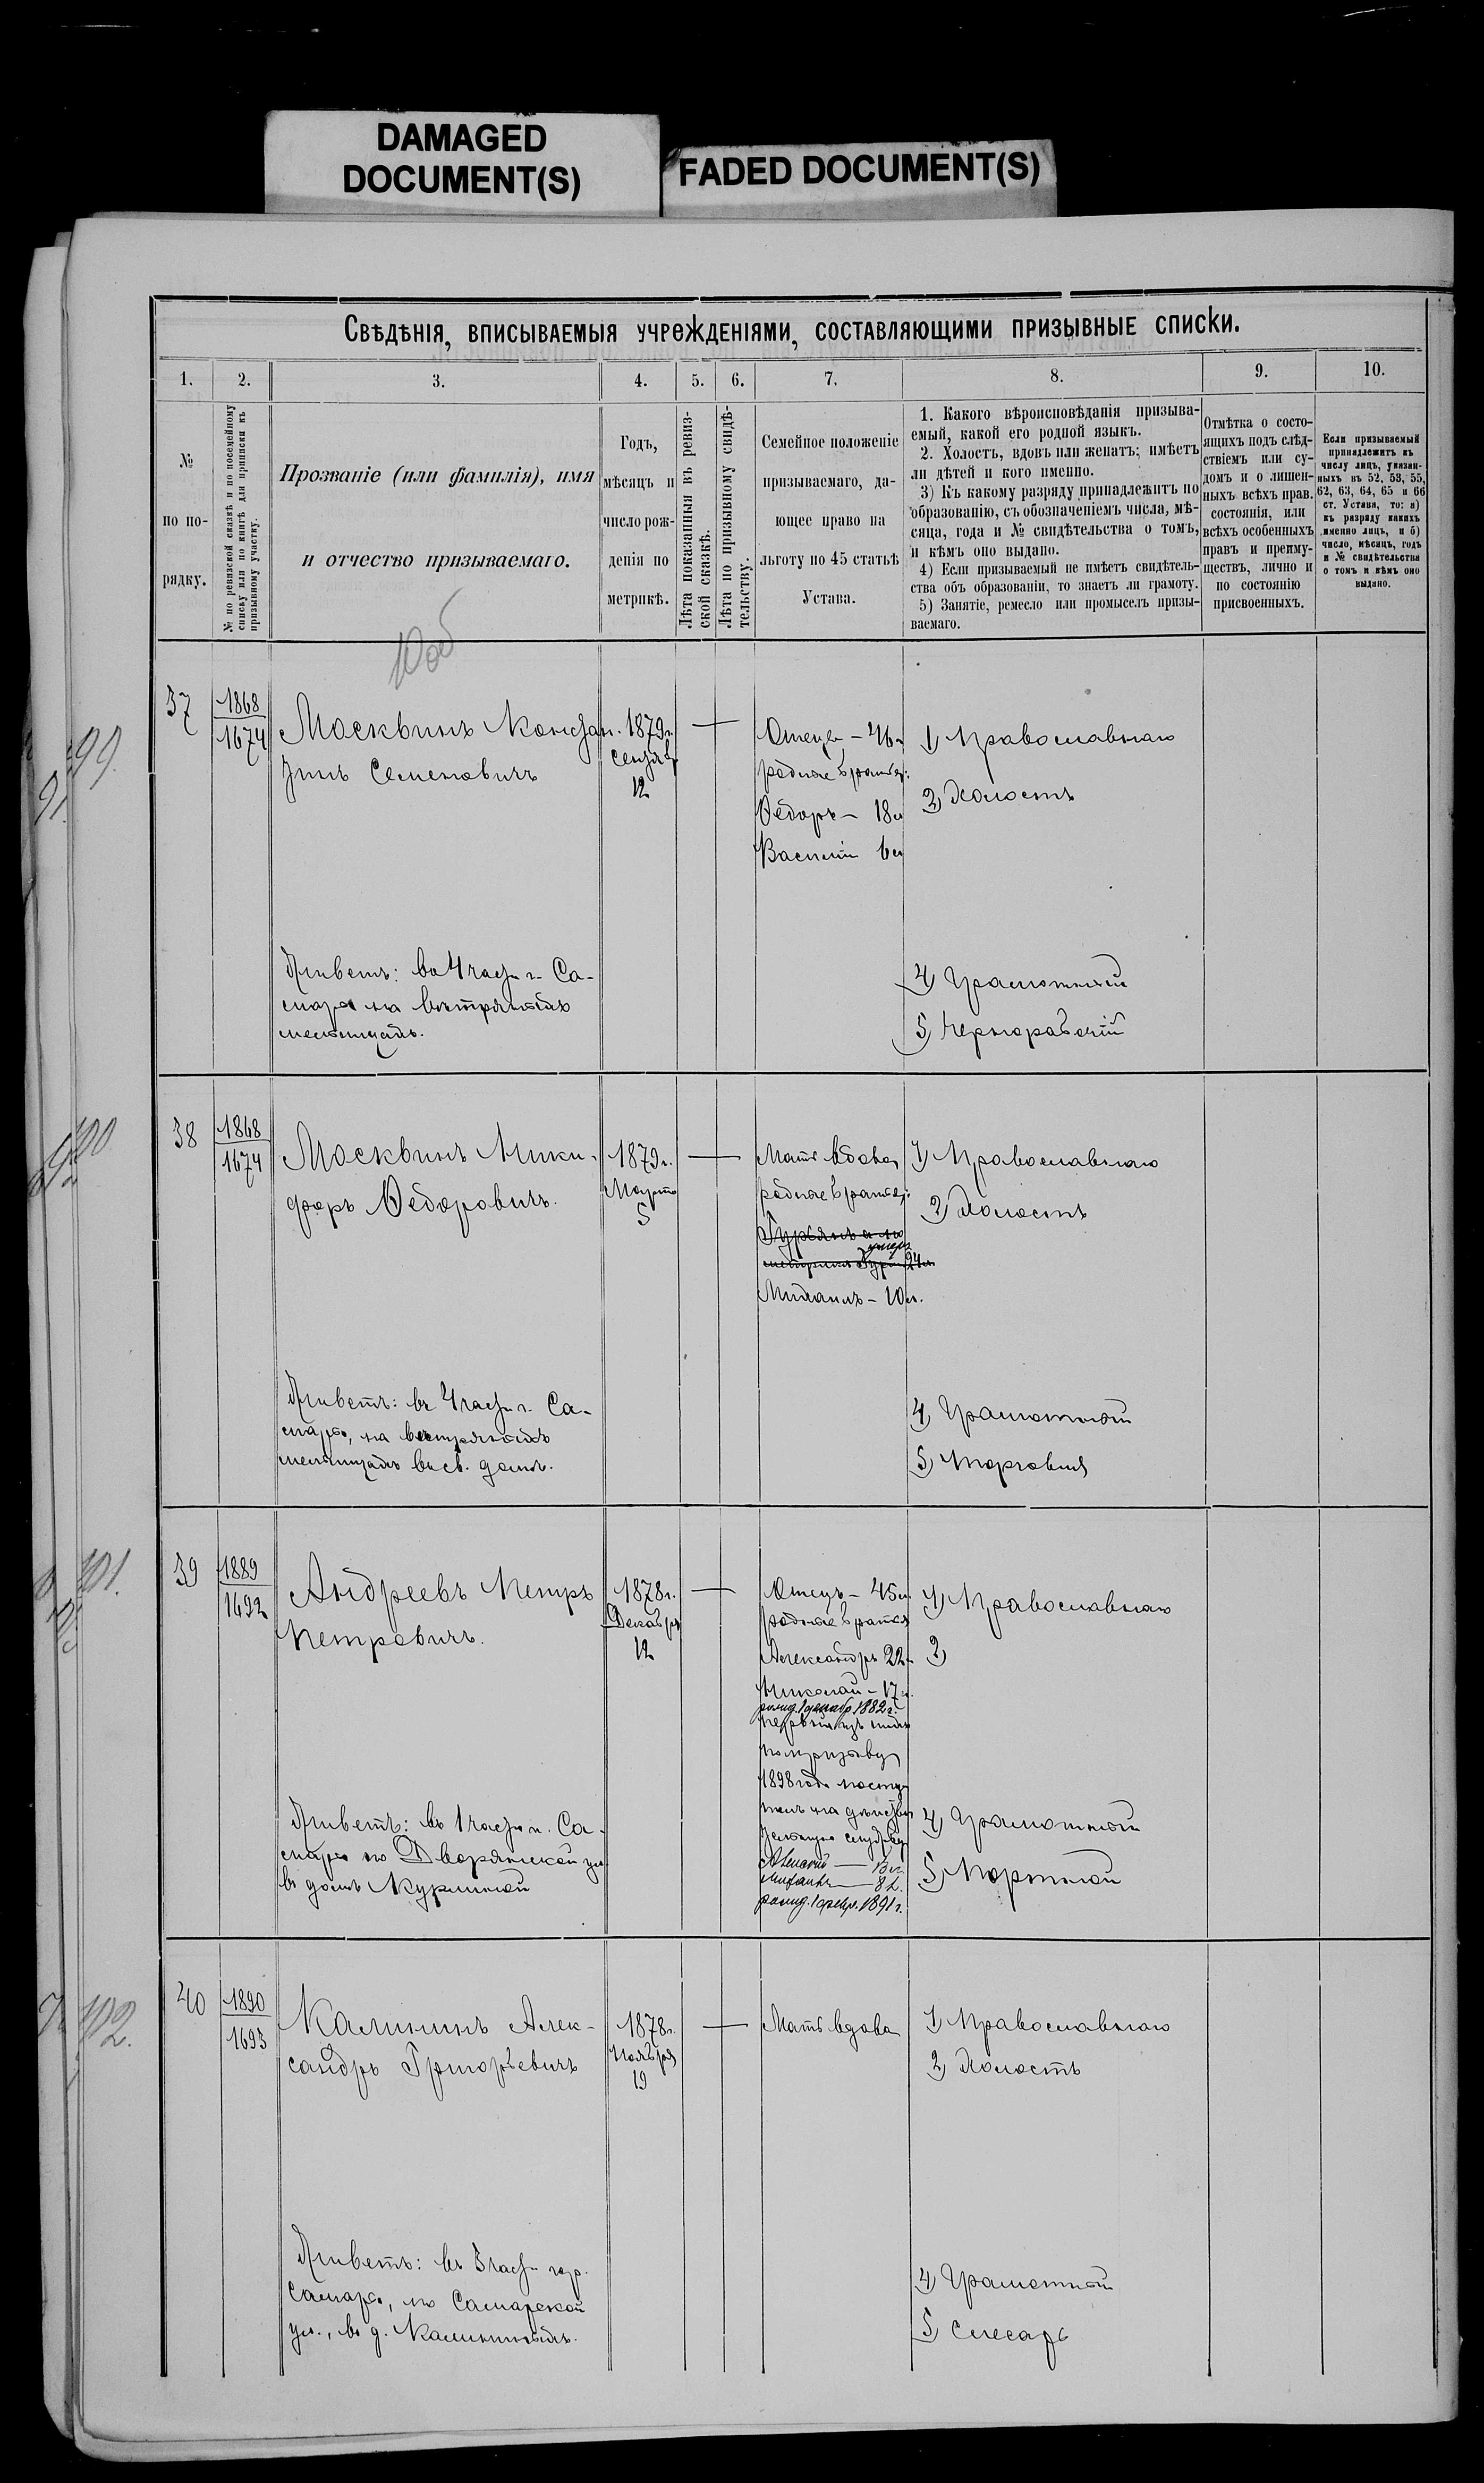 DAMAGED
DOCUMENT(S)
FADED DOCUMENT(S)
Свѣдѣнія, вписываемыя учрежденіями, составляющими призывные списки.
1.
2.
3.
4.
5.
6.
7.
8.
9.
10.
№
по по-
рядку.
№ по ревизской сказкѣ и по посемейному
списку или по книгѣ для приписки къ
призывному участку.
Прозваніе (или фамилія), имя
и отчество призываемаго.
Годъ,
мѣсяцъ и
число рож-
денія по
метрикѣ.
Лѣта показанныя въ ревиз-
ской сказкѣ.
Лѣта по призывному свидѣ-
тельству.
Семейное положеніе
призываемаго, да-
ющее право на
льготу по 45 статьѣ
Устава.
1. Какого вѣроисповѣданія призыва-
емый, какой его родной языкъ.
2. Холостъ, вдовъ или женатъ; имѣетъ
ли дѣтей и кого именно.
3) Къ какому разряду принадлежитъ по
образованію, съ обозначеніемъ числа, мѣ-
сяца, года и № свидѣтельства о томъ,
и кѣмъ оно выдано.
4) Если призываемый не имѣетъ свидѣтель-
ства объ образованіи, то знаетъ ли грамоту.
5) Занятіе, ремесло или промыселъ призы-
ваемаго.
Отмѣтка о состо-
ящихъ подъ слѣд-
ствіемъ или су-
домъ и о лишен-
ныхъ всѣхъ прав.
состоянія, или
всѣхъ особенныхъ
правъ и преиму-
ществъ, лично и
по состоянію
присвоенныхъ.
Если призываемый
принадлежитъ къ
числу лицъ, указан-
ныхъ въ 52, 53, 55,
62, 63, 64, 65 и 66
ст. Устава, то: а)
къ разряду какихъ
именно лицъ, и б)
число, мѣсяцъ, годъ
и № свидѣтельства
о томъ и кѣмъ оно
выдано.
99.
91.
37
1868
1674
Москвинъ Констан-
тинъ Семеновичъ
1879г.
Сентяб
12
Отецъ – 46 л
родные братья:
Ѳедоръ – 18 л
Василій 6 л
1) Православнаго
2) Холостъ
Живетъ: во 4 части г. Са-
мары на вѣтряныхъ
мельницахъ.
4) Грамотный
5) Чернорабочій
100
38
1868
1674
Москвинъ Ники-
форъ Ѳедоровичъ.
1879г.
Марта
5
Мать вдова
родные братья:
умеръ
24 л
Михаилъ – 10 л.
1) Православнаго
2) Холостъ
Живетъ: въ 4 части г. Са-
мары, на вѣтряныхъ
мельницахъ въ св. домѣ.
4) Грамотной
5) Торговля
101.
39
1889
1692
Андреевъ Петръ
Петровичъ.
1878г.
Декабря
12
Отецъ – 45 л
родные братья
Александръ 22 л
Николай – 17 л.
рожд. 1 декабр. 1882 г.
первый изъ нихъ
по призыву
1898 года посту
пилъ на дѣйстви
тельную службу
Алексѣй – 13 л.
Михаилъ – 8 л.
рожд. 1 февр. 1891 г.
1) Православнаго
2)
Живетъ: въ 1 части г. Са-
мары по Дворянской ул
въ домѣ Курлиной
4) Грамотной
5) Портной
102.
40
1890
1693
Калининъ Алек-
сандръ Григорьевичъ
1878г.
Ноября
19
Мать вдова
1) Православнаго
2) Холостъ
Живетъ: въ 3 части гор.
Самары, по Самарской
ул., въ д. Калининыхъ.
4) Грамотной
5) Слесарь